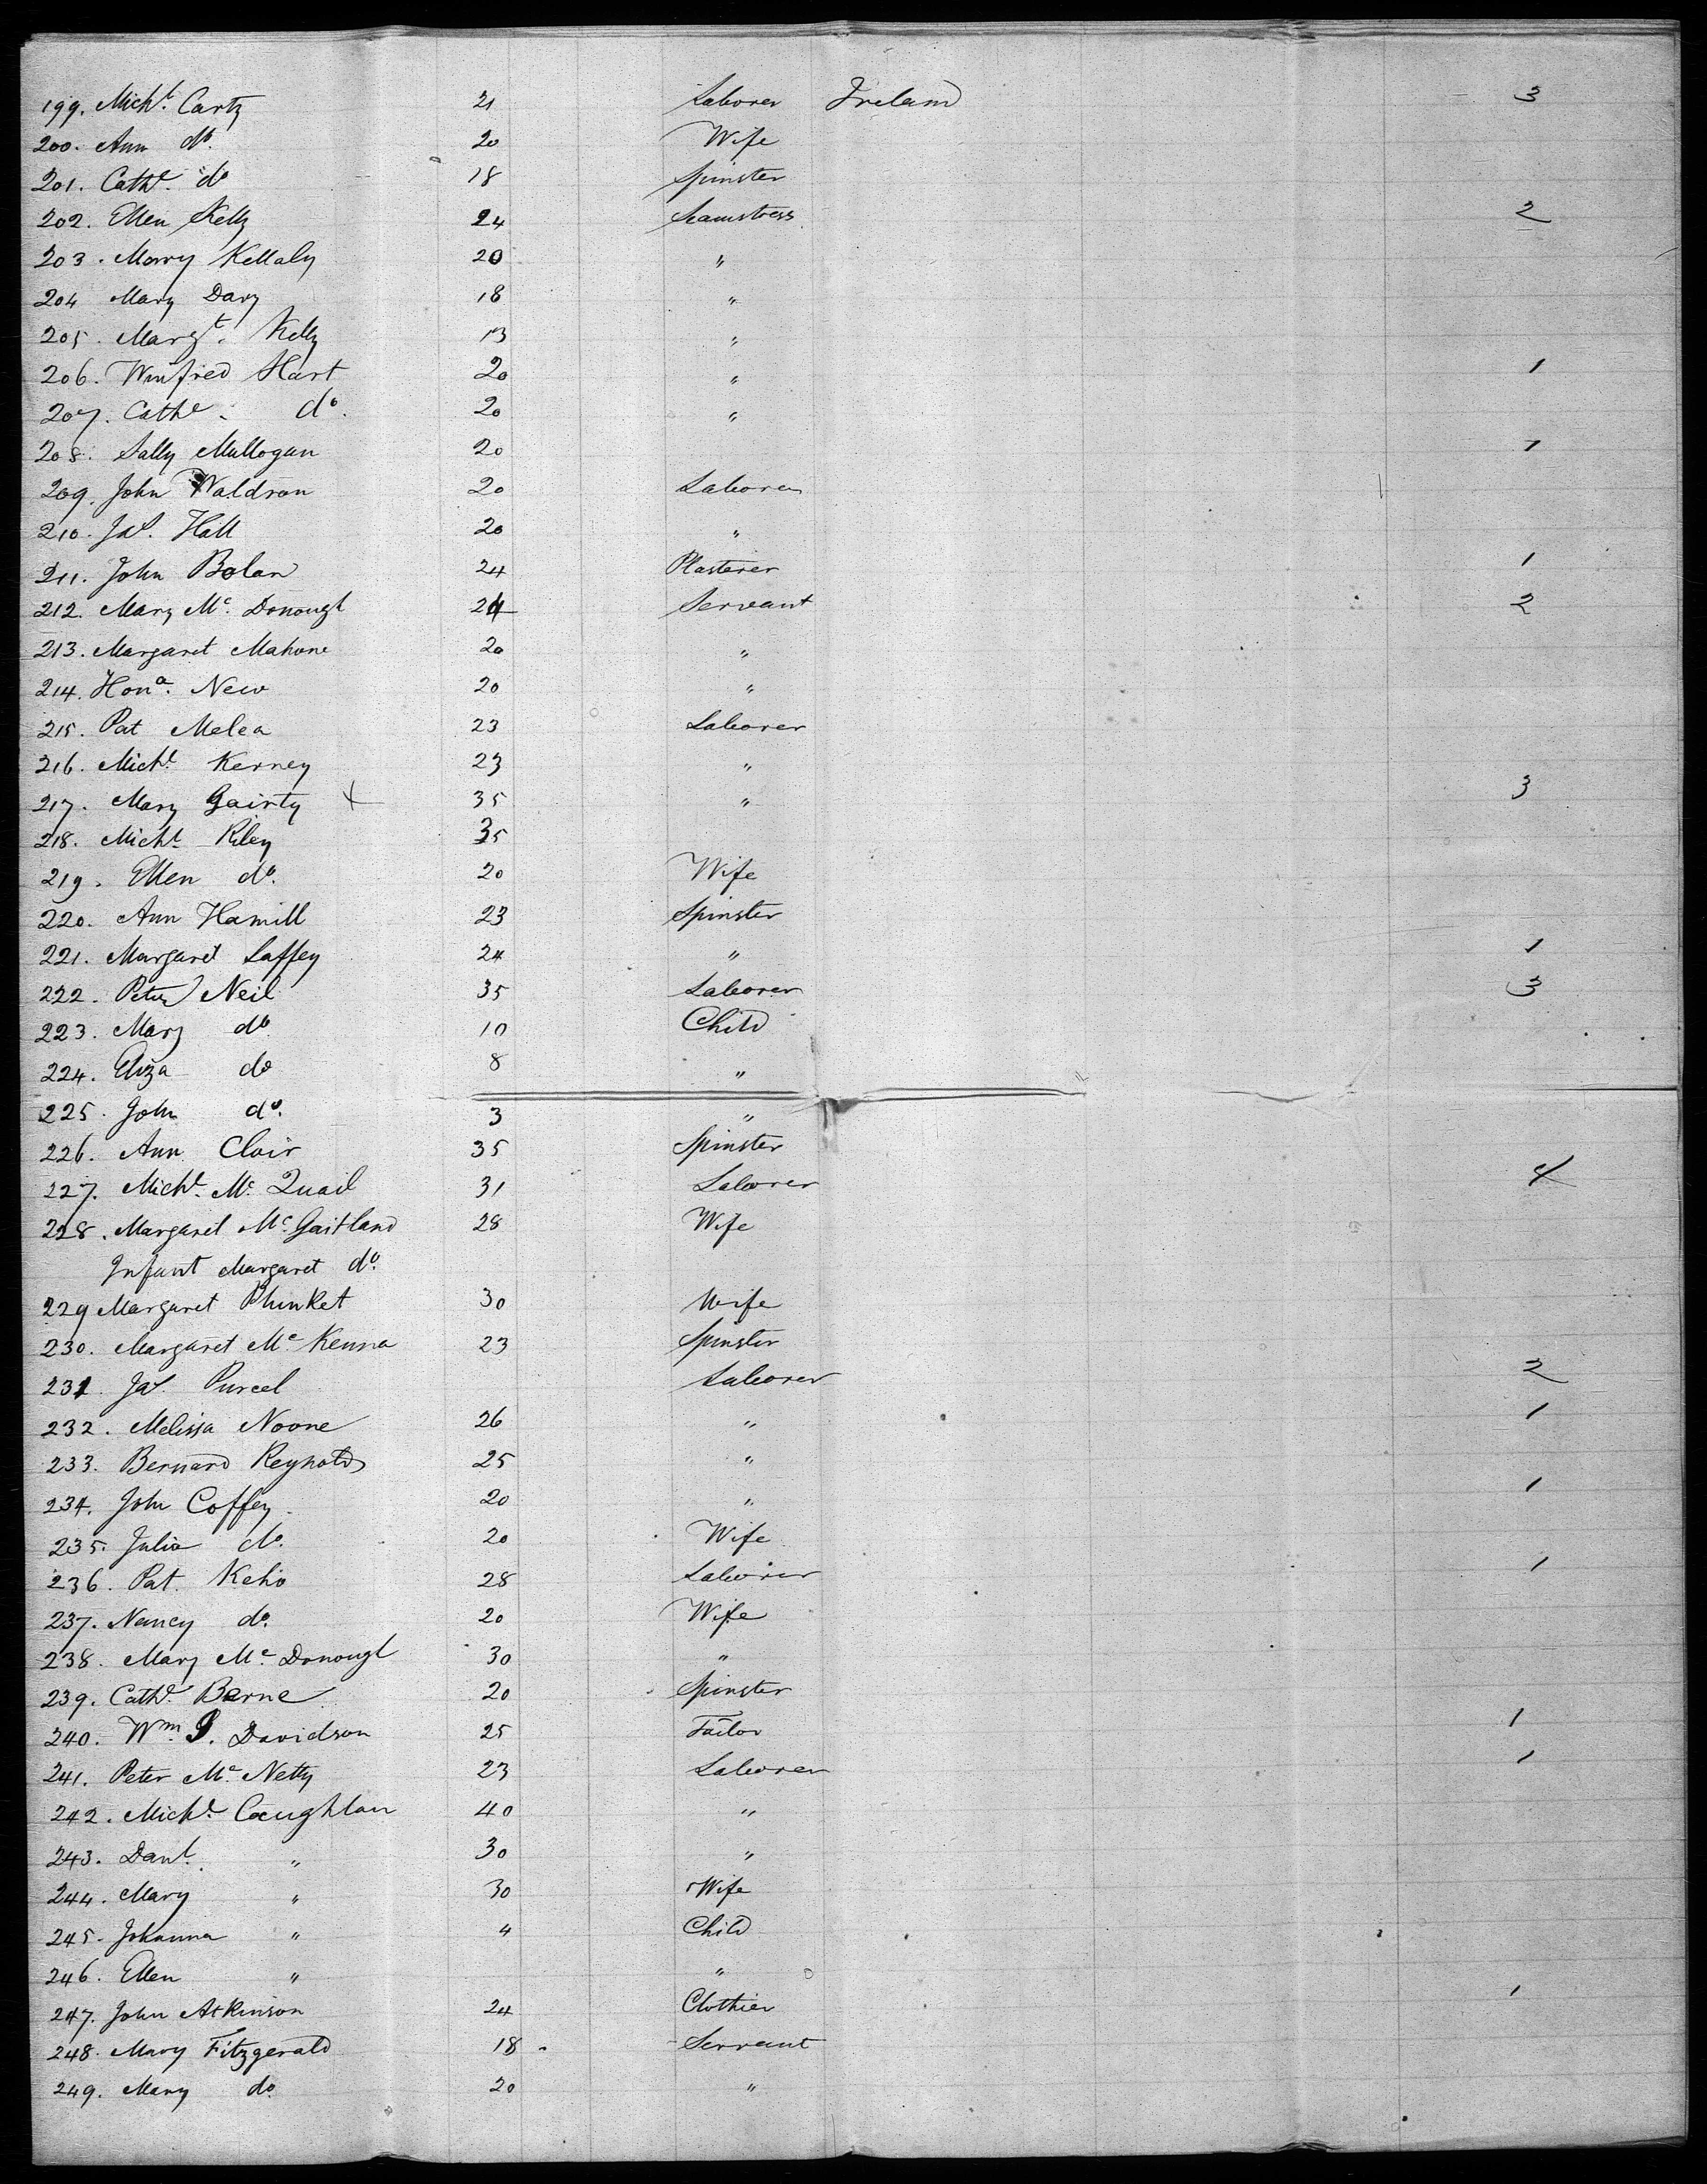 199. Michl. Carty 21 Laborer Ireland 3
200. Ann do. 20 Wife
201. Cathe. do 18 Spinster
202. Ellen Kelly 24 Seamstress 2
203. Mary Kellaly 20 "
204 Mary Davy 18 "
205. Margt. Kelly 13 "
206. Winfred Hart 20 " 1
207. Cathe. do. 20 "
208. Sally Mullogan 20 1
209. John Waldron 20 Laborer
210. Jas. Hall 20 "
211. John Bolan 24 Plasterer 1
212. Mary Mc. Donough 24 Servant 2
213. Margaret Mahone 20 "
214. Hona. New 20 "
215. Pat Melea 23 Laborer
216. Michl. Kerney 23 "
217. Mary Gairty X 35 " 3
218. Michl. Riley 35
219. Ellen do. 20 Wife
220. Ann Hamill 23 Spinster
221. Margaret Laffey 24 " 1
222. Peter Neil 35 Laborer 3
223. Mary do 10 Child
224. Eliza do 8 "
225. John do. 3 "
226. Ann Clair 35 Spinster
227. Michl. Mc. Quail 31 Laborer
228. Margaret Mc. Gaitland 28 Wife
Infant Margaret do.
229 Margaret Plunket 30 Wife
230. Margaret Mc Kenna 23 Spinster
231. Jas. Purcel Laborer 2
232. Melissa Noone 26 " 1
233. Bernard Reynolds 25 "
234. John Coffey. 20 " 1
235. Julia do. 20 Wife
236. Pat. Keho 28 Laborer 1
237. Nancy do. 20 Wife
238. Mary Mc. Donough 30 "
239. Cathe. Berne 20 Spinster
240. Wm. S. Davidson 25 Tailor 1
241. Peter Mc. Netty 23 Laborer 1
242. Michl. Coughlan 40 "
243. Danl. " 30 "
244. Mary " 30 Wife
245. Johanna " 4 Child
246. Ellen " "
247. John Atkinson 24 Clothier 1
248. Mary Fitzgerald 18 Servant
249. Mary do. 20 "